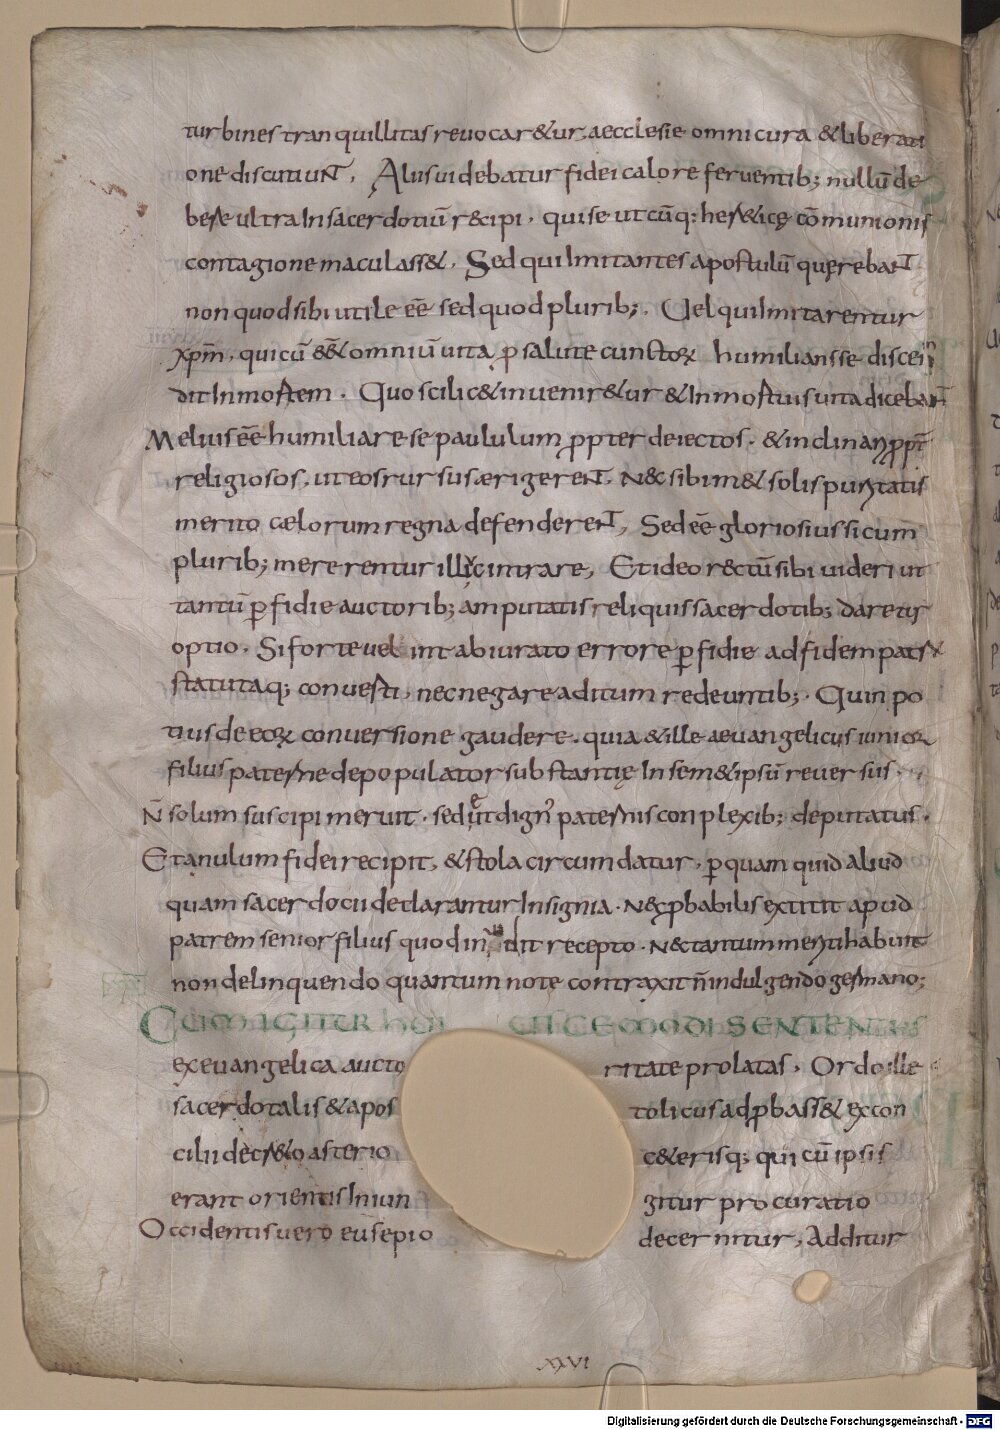 turbines tranquillitas reuocar&ur, aecclesie omni cura & liberati
one discutiunt, Aliis uidebatur fidei calore feruentib; nullū de
bere ultra In sacerdotiū r&cipi. qui se utcūq: her&icę cōmunionis
contagione maculass&. Sed qui Imitantes apostulū querebant
non quod sibi utile eē sed quod plurib;. Uel qui Imitarentur
xpm̄. qui cū ēē& omniū uita p̱ salute cunctoꝝ humilians se discen
dit In mortem. Quo scilic& inuenir&ur & In mortuis uita dicebant
Melius eē humiliare se paululum ꝓpter deiectos. & inclinari ꝓpt̄
religiosos. ut eos rursus ærigerent. N&c sibim& solis puritatis
merito cælorum regna defenderent, Sed eē gloriosius si cum
plurib; mererentur illic intrare, Et ideo r&ctū sibi uideri ut
tantū ꝑfidie auctorib; amputatis reliquis sacerdotib; daretur
optio. Si forte uel int abiurato errore ꝑfidie ad fidem patrū
statutaq; conuerti, nec negare aditum redeuntib;. Quin po
tius de eoꝝ conuersione gaudere. quia & ille aeuangelicus iunior
filius paterne depopulator substantię In sem&ipsū reuersus.
N̄ solum suscipi meruit. sed et ut dign᾿ paternis conplexib; deputatus.
Et anulum fidei recipit, & stola circumdatur, ꝑ quam quid aliud
quam sacerdocii declarantur Insignia. N&c ꝓbabilis extitit apud
patrem senior filius quod inuidit recepto. N&c tantum meriti habuit
non delinquendo quantum note contraxit n̄ indulgendo germano;
CUM IGITUR HUIUSCEMODI SENTENTIAS
ex euangelica auctoritate prolatas. Ordo ille
sacerdotalis & apostolicus adꝓbass& ex con
cilii decr&o asterio c&erisq; qui cū ipsis
erant orientis Iniungitur procuratio
Occidentis uero eusepio decernitur, Additur
XXVI
Digitalisierung gefördert durch die Deutsche Forschungsgemeinschaft - DFG